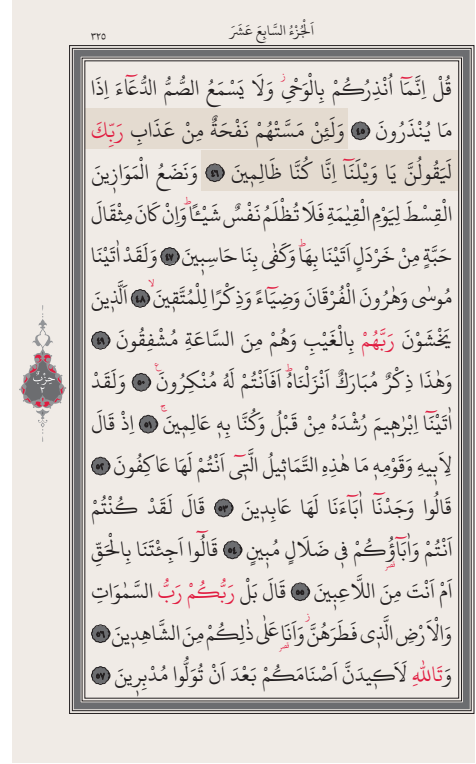 اَلْجُزْءُ السَّابِعَ عَشَرَ
٣٢٥
قُلْ اِنَّمَٓا اُنْذِرُكُمْ بِالْوَحْيِۘ وَلَا يَسْمَعُ الصُّمُّ الدُّعَٓاءَ اِذَا
مَا يُنْذَرُونَ ﴿٤٥﴾ وَلَئِنْ مَسَّتْهُمْ نَفْحَةٌ مِنْ عَذَابِ رَبِّكَ
لَيَقُولُنَّ يَا وَيْلَنَٓا اِنَّا كُنَّا ظَالِم۪ينَ ﴿٤٦﴾ وَنَضَعُ الْمَوَاز۪ينَ
الْقِسْطَ لِيَوْمِ الْقِيٰمَةِ فَلَا تُظْلَمُ نَفْسٌ شَيْـًٔاۜ وَاِنْ كَانَ مِثْقَالَ
حَبَّةٍ مِنْ خَرْدَلٍ اَتَيْنَا بِهَاۜ وَكَفٰى بِنَا حَاسِب۪ينَ ﴿٤٧﴾ وَلَقَدْ اٰتَيْنَا
مُوسٰى وَهٰرُونَ الْفُرْقَانَ وَضِيَٓاءً وَذِكْرًا لِلْمُتَّق۪ينَۙ ﴿٤٨﴾ اَلَّذ۪ينَ
يَخْشَوْنَ رَبَّهُمْ بِالْغَيْبِ وَهُمْ مِنَ السَّاعَةِ مُشْفِقُونَ ﴿٤٩﴾
وَهٰذَا ذِكْرٌ مُبَارَكٌ اَنْزَلْنَاهُۜ اَفَاَنْتُمْ لَهُ مُنْكِرُونَ۟ ﴿٥٠﴾ وَلَقَدْ
اٰتَيْنَٓا اِبْرٰه۪يمَ رُشْدَهُ مِنْ قَبْلُ وَكُنَّا بِه۪ عَالِم۪ينَۚ ﴿٥١﴾ اِذْ قَالَ
لِاَب۪يهِ وَقَوْمِه۪ مَا هٰذِهِ التَّمَاث۪يلُ الَّت۪ٓي اَنْتُمْ لَهَا عَاكِفُونَ ﴿٥٢﴾
قَالُوا وَجَدْنَٓا اٰبَٓاءَنَا لَهَا عَابِد۪ينَ ﴿٥٣﴾ قَالَ لَقَدْ كُنْتُمْ
اَنْتُمْ وَاٰبَٓاؤُ۬كُمْ ف۪ي ضَلَالٍ مُب۪ينٍ ﴿٥٤﴾ قَالُٓوا اَجِئْتَنَا بِالْحَقِّ
اَمْ اَنْتَ مِنَ اللَّاعِب۪ينَ ﴿٥٥﴾ قَالَ بَلْ رَبُّكُمْ رَبُّ السَّمٰوَاتِ
وَالْاَرْضِ الَّذ۪ي فَطَرَهُنَّۘ وَاَنَا۬ عَلٰى ذٰلِكُمْ مِنَ الشَّاهِد۪ينَ ﴿٥٦﴾
وَتَاللّٰهِ لَاَك۪يدَنَّ اَصْنَامَكُمْ بَعْدَ اَنْ تُوَلُّوا مُدْبِر۪ينَ ﴿٥٧﴾
حِزْبْ